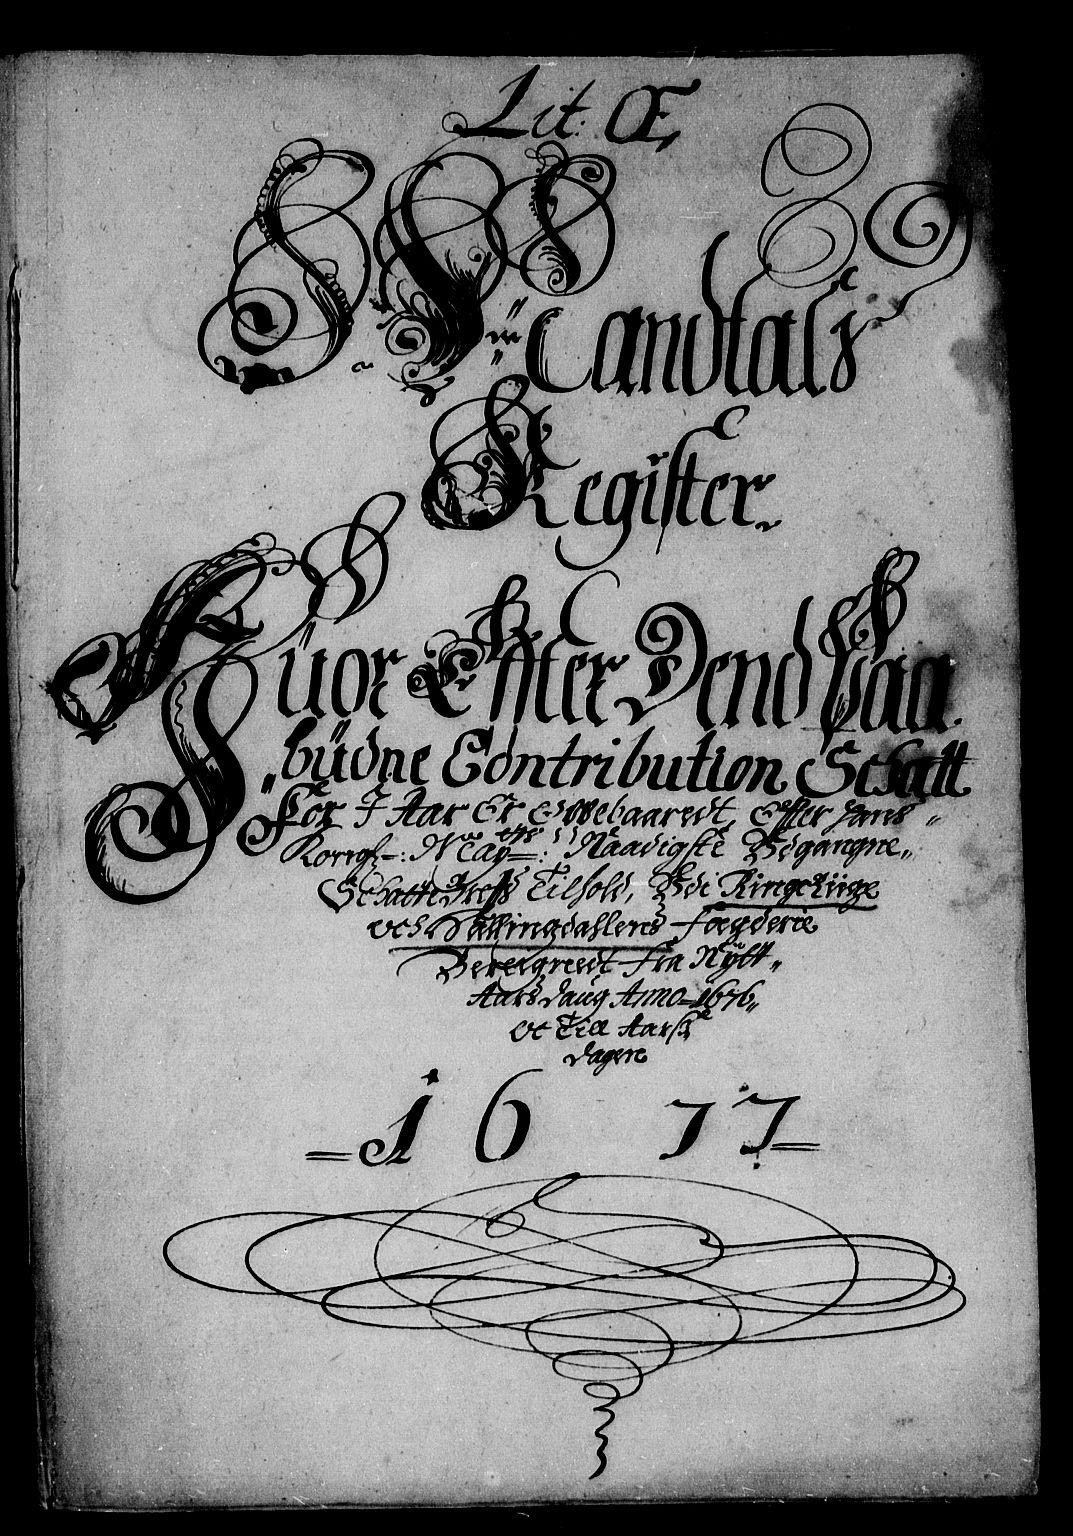 Lit: Œ,
Mandtals
Register
Huor Efter Dend Paa
büdne Contribution Schatt
For I Aar Er Opebaaredt, Efter Hans
Kongl: Maytz: Naadigste Udgangne
Schatte Brefs Tilhold, Udi Ringeriige
och Hallingdahlens Fogderie
Beregnedt fra Nÿtt
Aars daug Anno 1676
oc Till Aarsz
dagen
1677